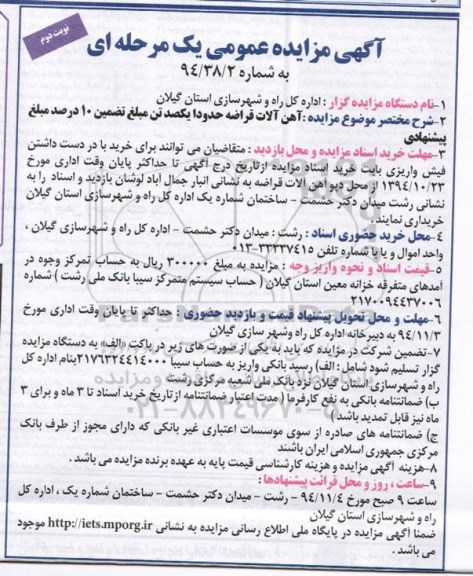 نوبت دوم
آگهی مزایده عمومی یک مرحله ای
به شماره ۹۴/۳۸/۲
۱-نام دستگاه مزایده گزار : اداره کل راه و شهرسازی استان گیلان
۲-شرح مختصر موضوع مزایده :آهن آلات قراضه حدودا یکصد تن مبلغ تضمین ۱۰ درصد مبلغ
پیشنهادی
۳-مهلت خرید اسناد مزایده و محل بازدید : متقاضیان می توانند برای خرید با در دست داشتن
فیش واریزی بابت خرید اسناد مزایده ازتاریخ درج آگهی تا حداکثر پایان وقت اداری مورخ
۱۳۹۴/۱۰/۲۳ از محل دپو آهن آلات قراضه به نشانی انبار جمال آباد لوشان بازدید و اسناد را به
نشانی رشت میدان دکتر حشمت - ساختمان شماره یک اداره کل راه و شهرسازی استان گیلان
خریداری نمایند .
۴-محل خرید حضوری اسناد : رشت : میدان دکتر حشمت - اداره کل راه و شهرسازی گیلان ،
واحد اموال و یا با شماره تلفن ۳۳۳۳۷۴۱۵-۰۱۳
۵-قیمت اسناد و نحوه واریز وجه : مزایده به مبلغ ۳۰۰۰۰۰ ریال به حساب تمرکز وجوه در
آمدهای متفرقه خزانه معین استان گیلان ( حساب سیستم متمرکز سیبا بانک ملی رشت ) شماره
۲۱۷۰۰۹۴۴۳۷۰۰۶
۶-مهلت و محل تحویل پیشنهاد قیمت و بازدید حضوری : حداکثر تا پایان وقت اداری مورخ
۹۴/۱۱/۳ به دبیرخانه اداره کل راه وشهر سازی گیلان
۷-تضمین شرکت در مزایده که باید به یکی از صورت های زیر در پاکت «الف» به دستگاه مزایده
گزار تسلیم شود شامل : الف) رسید بانکی واریز به حساب سیبا ۲۱۷۶۳۲۴۴۱۴۰۰۰بنام اداره کل
راه و شهرسازی استان گیلان نزد بانک ملی شعبه مرکزی رشت
ب) ضمانتنامه بانکی به نفع کارفرما ( مدت اعتبار ضمانتنامه ازتاریخ خرید اسناد تا ۳ ماه و برای ۳
ماه نیز قابل تمدید باشد )
ج) ضمانتنامه های صادره از سوی موسسات اعتباری غیر بانکی که دارای مجوز از طرف بانک
مرکزی جمهوری اسلامی ایران باشند
۸-هزینه آگهی مزایده و هزینه کارشناسی قیمت پایه به عهده برنده مزایده می باشد .
۹-ساعت ، روز و محل قرائت پیشنهادها :
ساعت ۹ صبح مورخ ۹۴/۱۱/۴ - رشت - میدان دکتر حشمت - ساختمان شماره یک ، اداره کل
راه و شهرسازی استان گیلان
ضمنا آگهی مزایده در پایگاه ملی اطلاع رسانی مزایده به نشانی http://iets.mporg.ir موجود
می باشد .